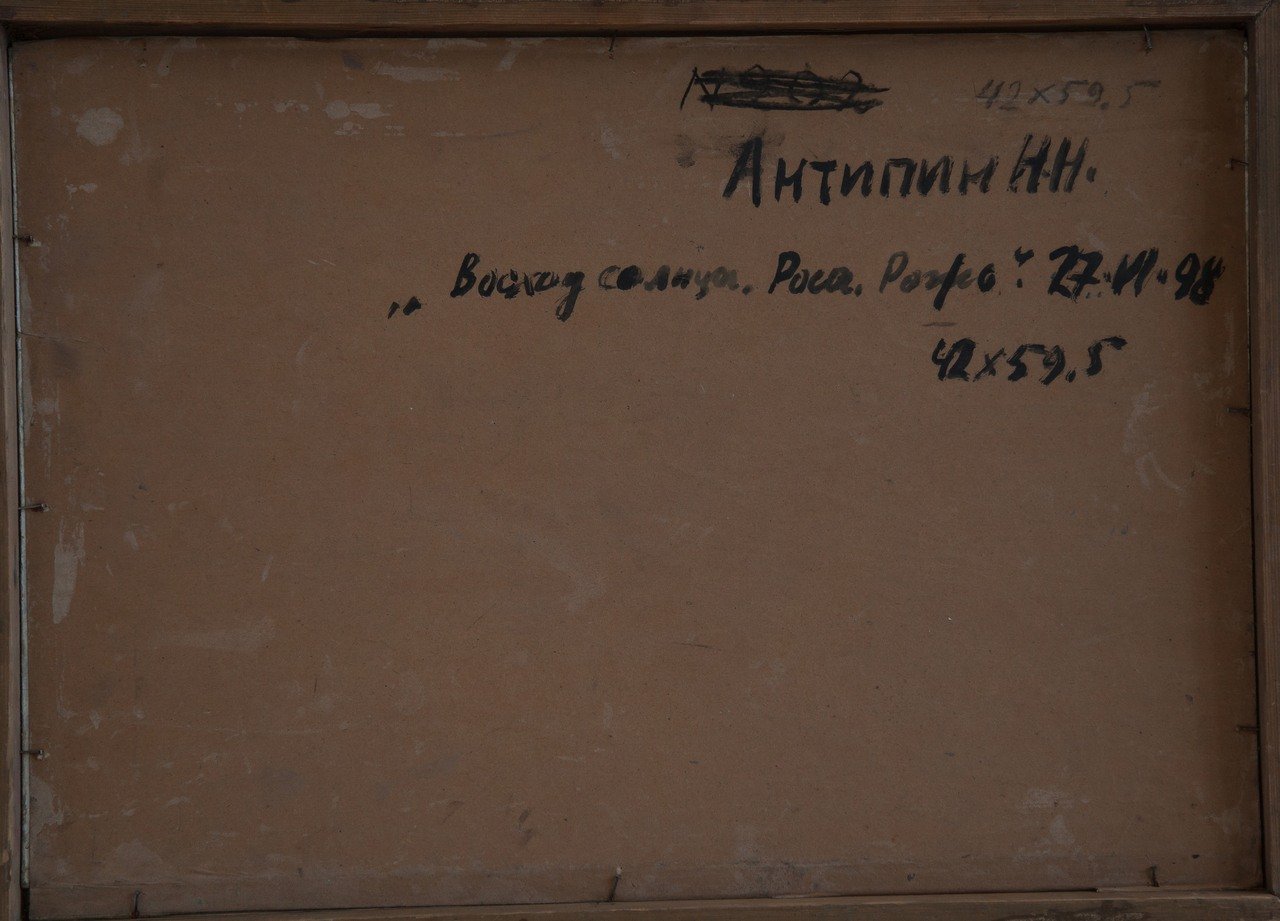 42х59.5
Антипин Н.Н.
„Восход солнца. Роса. Рожь“. 27.VI.98
42х59.5